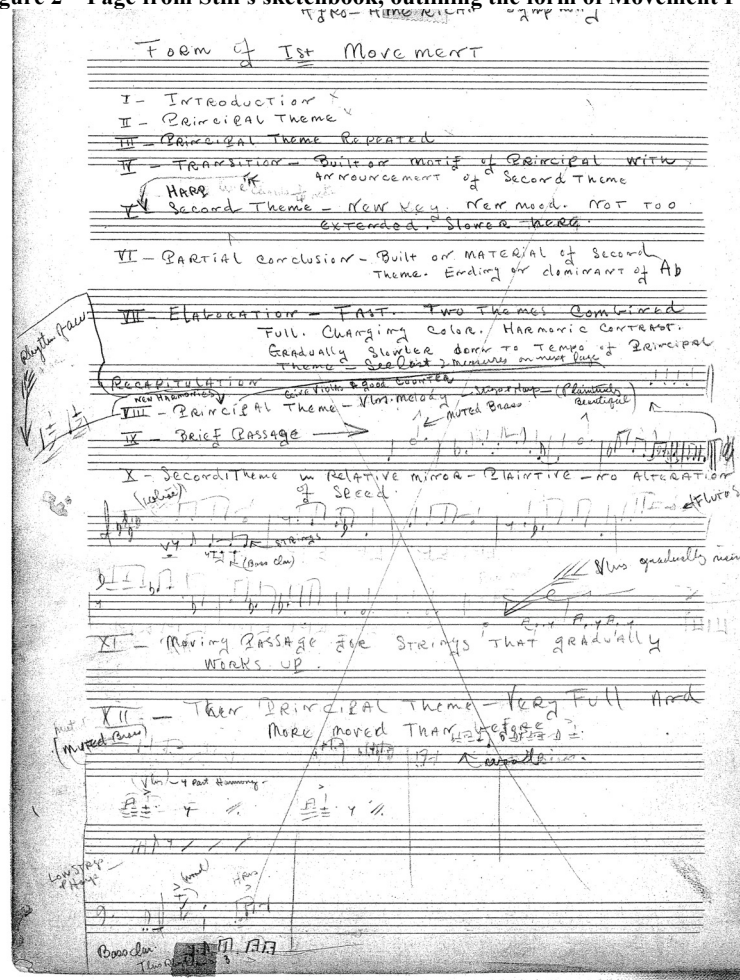 gure 2 – Page from Still's sketchbook, outlining the form of Movement I
AFRO-AMERICAN Symphony
FORM of Ist MOVEMENT
I – INTRODUCTION
II – PRINCIPAL THEME
III – PRINCIPAL THEME REPEATED
IV – TRANSITION – Built on motif of PRINCIPAL with
ANNOUNCEMENT of Second THEME
HARP
V Second THEME – New Key. New mood. NOT TOO
extended. Slower here.
VI – PARTIAL conclusion – Built on MATERIAL of Second
Theme. Ending on dominant of Ab
VII – ELABORATION – FAST. Two Themes Combined
Full. Changing color. HARMONIC CONTRAST.
GRADUALLY Slower down to Tempo of Principal
Theme – See last 2 measures on next page
RECAPITULATION
NEW HARMONIES
Give Violas a good COUNTER
VIII – PRINCIPAL Theme – Vlns. melody
(Plaintively
Beautiful)
MUTED Brass
IX – BRIEF PASSAGE
X – Second Theme in RELATIVE minor – PLAINTIVE – NO ALTERATION
of Speed.
Flutes
STRINGS
(Bass Clar)
Vlns gradually
XI – Moving PASSAGE for STRINGS THAT gRADuAlly
WORKS UP.
XII – Then PRINCIPAL Theme – VERY Full And
MORE moved THAN before
(muted Brass)
(Vlns) 4 Part Harmony.
Low STRGS
& Harp
Wood
HRNS
Bass Clar.
This Rhythm
3